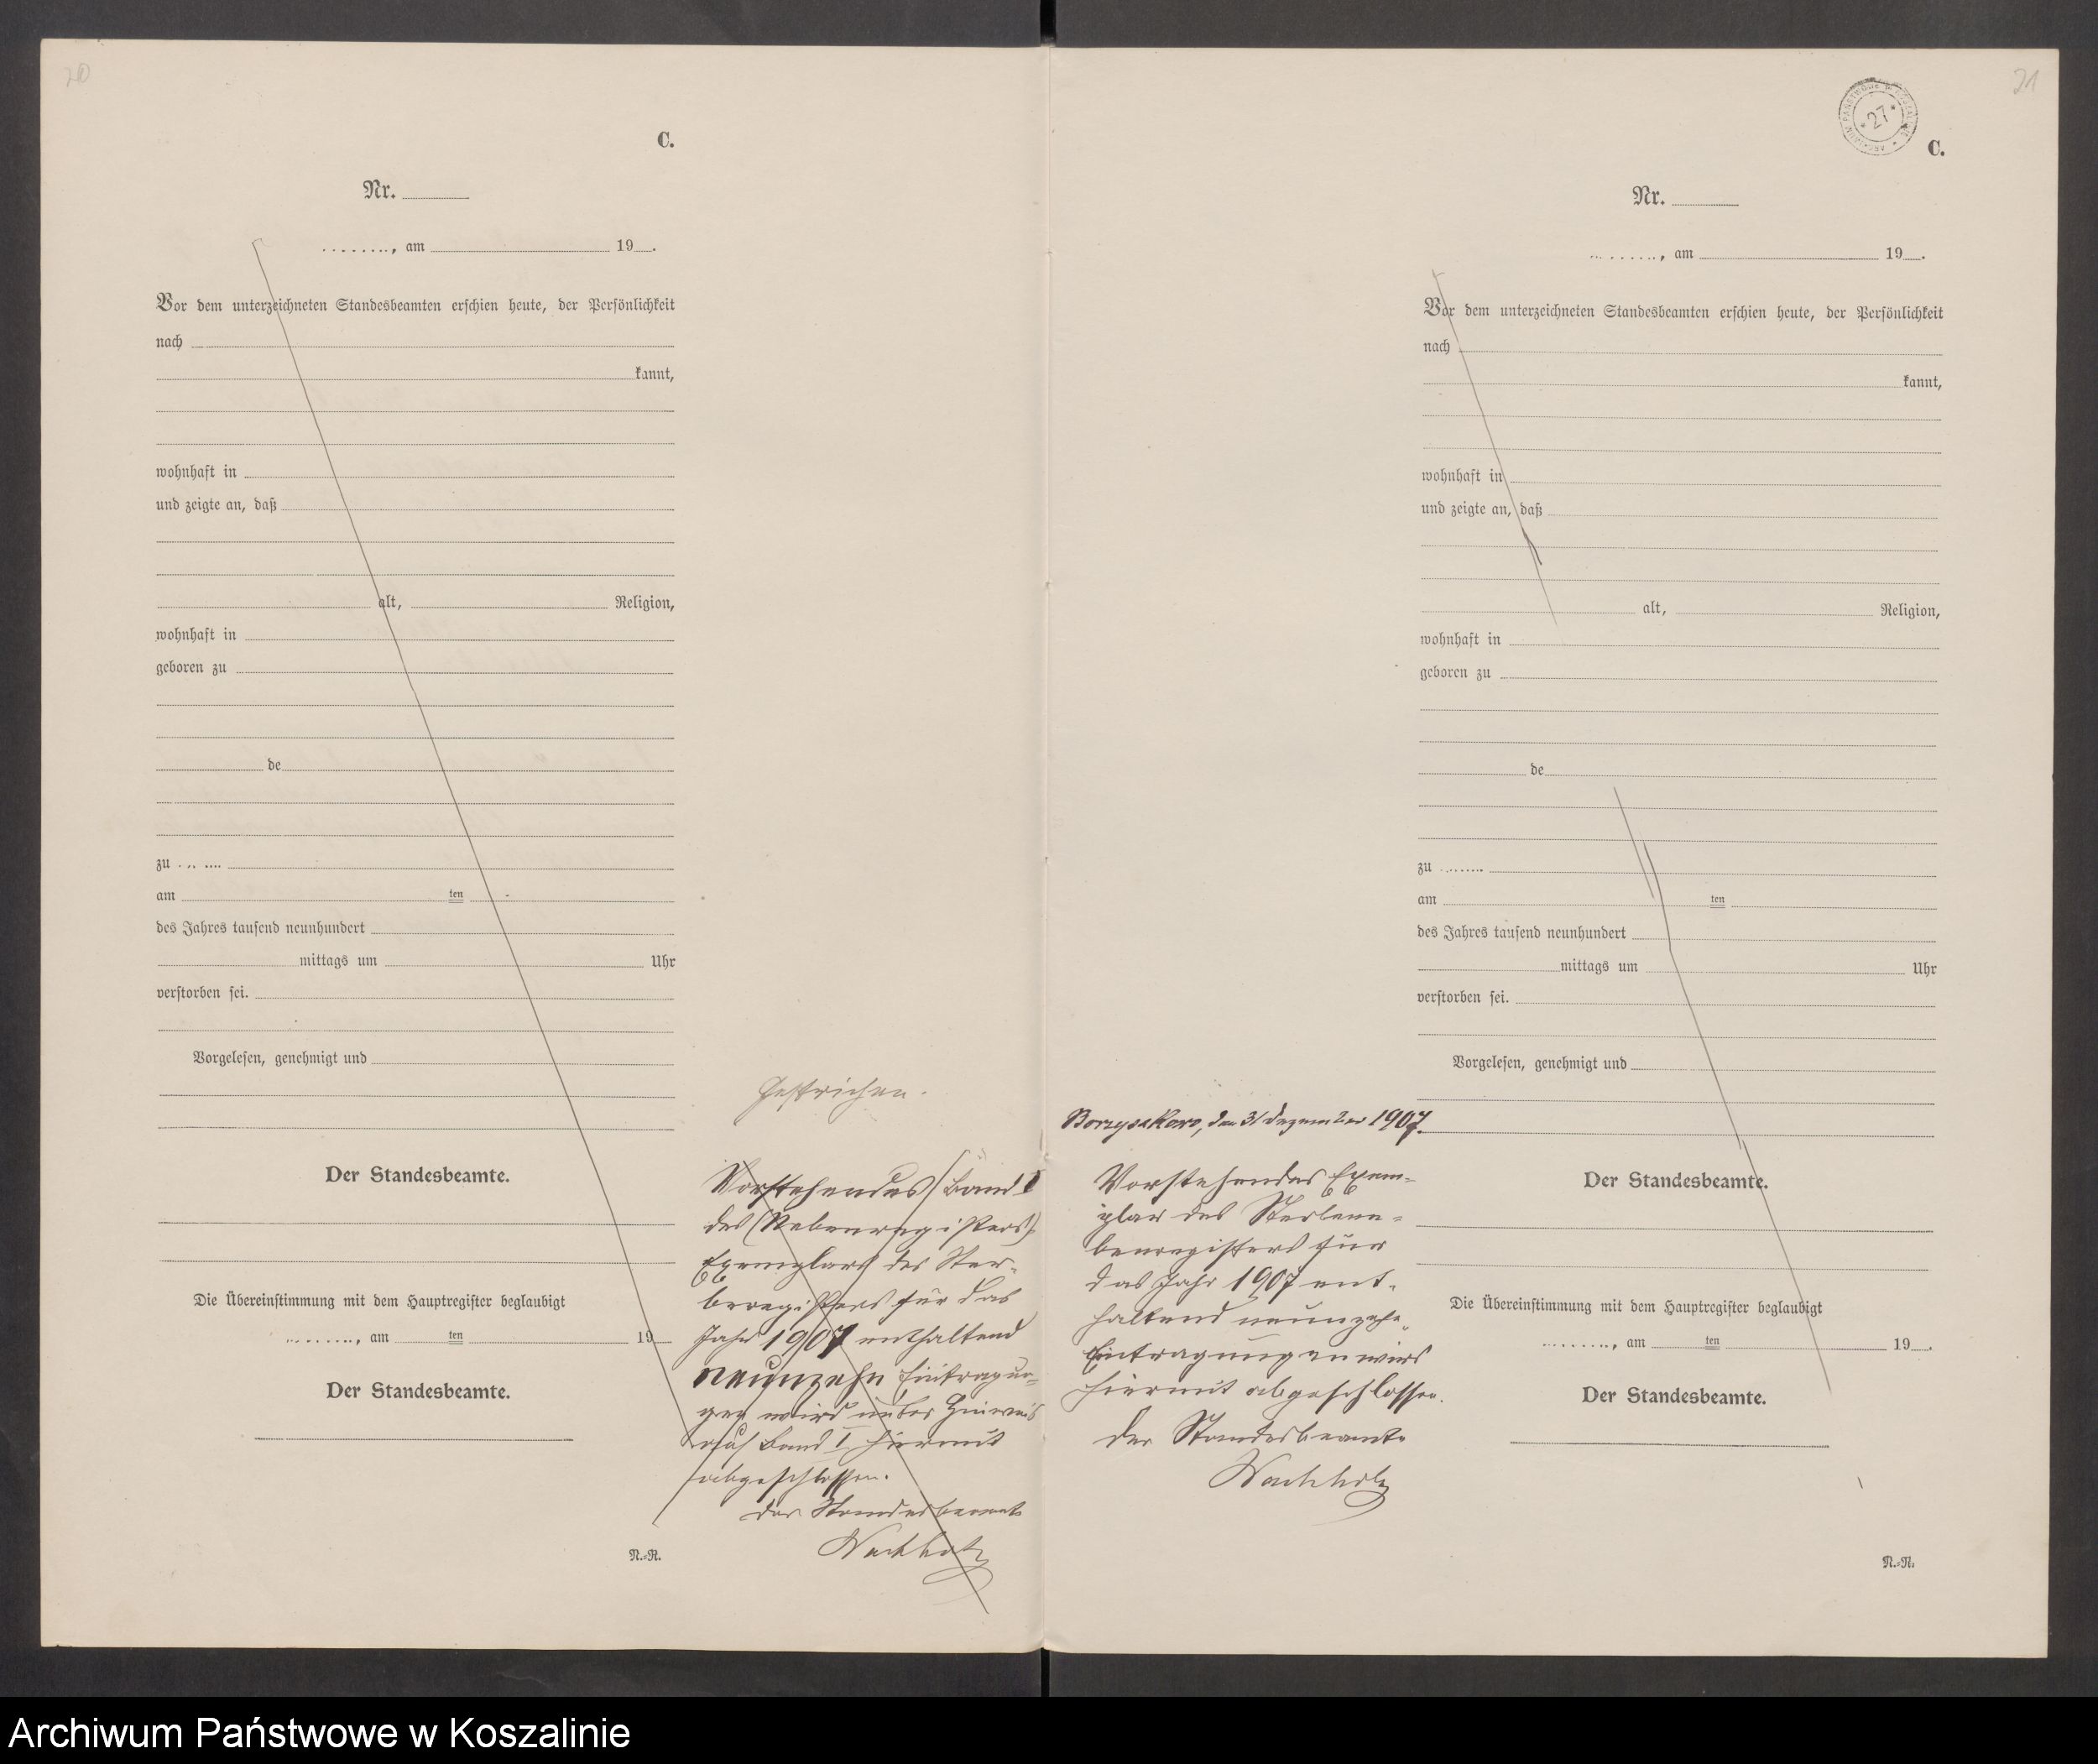 20
C.
Nr.
........, am 19 .
Vor dem unterzeichneten Standesbeamten erschien heute, der Persönlichkeit
nach
kannt,
wohnhaft in
und zeigte an, daß
alt, Religion,
wohnhaft in
geboren zu
de
zu ........
am ten
des Jahres tausend neunhundert
mittags um Uhr
verstorben sei.
Vorgelesen, genehmigt und
Der Standesbeamte.
Die Übereinstimmung mit dem Hauptregister beglaubigt
........, am ten 19
Der Standesbeamte.
N.-R.
Gestrichen.
Vorstehendes (Band I
des (Nebenregisters)
Exemplars des Ster-
beregisters für das
Jahr 1907 enthaltend
neunzehn Eintragun-
gen wird unter Hinweis
auf Band I hiermit
abgeschlossen.
Der Standesbeamte
Wachholz
21
ARCHIWUM PAŃSTWOWE W KOSZALINIE
* 27 *
C.
Nr.
........, am 19 .
Vor dem unterzeichneten Standesbeamten erschien heute, der Persönlichkeit
nach
kannt,
wohnhaft in
und zeigte an, daß
alt, Religion,
wohnhaft in
geboren zu
de
zu ........
am ten
des Jahres tausend neunhundert
mittags um Uhr
verstorben sei.
Vorgelesen, genehmigt und
Der Standesbeamte.
Die Übereinstimmung mit dem Hauptregister beglaubigt
........, am ten 19 .
Der Standesbeamte.
N.-R.
Borzyskowo, den 31 Dezember 1907.
Vorstehendes Exem-
plar des Nerbenn-
benregisters für
das Jahr 1907 ent-
haltend neunzehn
Eintragungen wird
hiermit abgeschlossen.
Der Standesbeamte
Wachholz
Archiwum Państwowe w Koszalinie